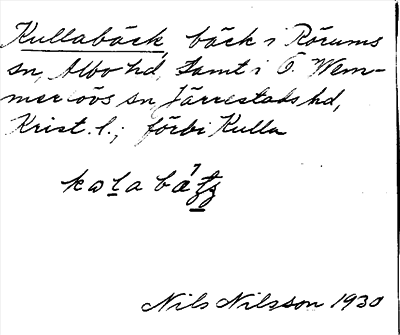 Kullabäck, bäck i Rörums
sn, Albo hd, samt i Ö. Wem-
merlövs sn, Järrestads hd,
Krist. l.; förbi Kulla
Nils Nilsson 1930